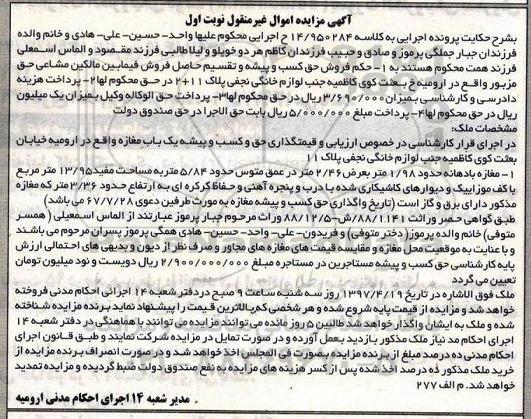 آگهی مزایده اموال غیرمنقول نوبت اول
بشرح حکایت پرونده اجرایی به کلاسه ۱۴/۹۵۰۲۸۴ ح اجرایی محکوم علیها واحد- حسین- علی- هادی و خانم والده
فرزندان جبار جملگی پرموز و صادق و حبیب فرزندان کاظم هر دو خویلو و لیلا طالبی فرزند مقصود و الماس اسمعلی
فرزند همت محکوم هستند به ۱- حکم فروش حق کسب و پیشه و تقسیم حاصل فروش فیمابین مالکین مشاعی حق
مزبور واقع در ارومیه خ بعثت کوی کاظمیه جنب لوازم خانگی نجفی پلاک ۱۱ +۲ در حق محکوم لها ۲- پرداخت هزینه
دادرسی و کارشناسی بمیزان ۳/۶۹۰/۰۰۰ ریال در حق محکوم لها ۳- پرداخت حق الوکاله وکیل بمیزان یک میلیون
ریال در حق محکوم لها ۴- پرداخت مبلغ ۵/۰۰۰/۰۰۰ ریال بابت حق الاجرا در حق صندوق دولت
مشخصات ملک:
در اجرای قرار کارشناسی در خصوص ارزیابی و قیمتگذاری حق و کسب و پیشه یک باب مغازه واقع در ارومیه خیابان
بعثت کوی کاظمیه جنب لوازم خانگی نجفی پلاک ۱۱
۱- مغازه بادهانه حدود ۱/۹۸ متر بعرض ۲/۴۶ متر در عمق متوس حدود ۵/۸۴ متر به مساحت مفید ۱۳/۹۵ متر مربع
با کف موزاییک و دیوارهای کاشیکاری شده با درب و پنجره آهنی و حفاظ کرکره ای به ارتفاع حدود ۳/۳۶ متر که مغازه
مذکور دارای برق و گاز است (تاریخ واگذاری حق کسب و پیشه مغازه به مورث طرفین دعوی ۶۷/۷/۲۸ می باشد)
طبق گواهی حصر وراثت ۸۸/۱۱۴۱ش-۸۸/۱۲/۵ وراث مرحوم جبار پرموز عبارتند از الماس اسمعیلی (همسر
متوفی) خانم والده پرموز (دختر متوفی) و فریدون- علی- واحد- حسین- هادی همگی پرموز پسران مرحوم می باشند
و با عنایت به موقعیت محل مغازه و مقایسه قیمت های مغازه های مجاور و صرف نظر از دیون و بدیهی های احتمالی ارزش
پایه کارشناسی حق کسب و پیشه مستاجرین در مستاجره مبلغ ۲/۹۰۰/۰۰۰/۰۰۰ ریال دویست و نود میلیون تومان
تعیین می گردد
ملک فوق الاشاره در تاریخ ۱۳۹۷/۴/۱۹ روز سه شنبه ساعت ۹ صبح در دفتر شعبه ۱۴ اجرائی احکام مدنی فروخته
خواهد شد و مزایده از قیمت پایه شروع شده و هر شخصی که بالاترین قیمت را پیشنهاد نماید برنده مزایده شناخته
شده و ملک به ایشان واگذار خواهد شد طالبین ۵ روز مانده می توانند مزایده می توانند با هماهنگی در دفتر شعبه ۱۴
اجرای احکام مد نیاز ملک مذکور بازدید بعمل آورده و در صورت تمایل در مزایده شرکت نمایند و طبق قانون اجرای
احکام مدنی ده درصد مبلغ از برنده مزایده بصورت فی المجلس اخذ خواهد شد و در صورت انصراف برنده مزایده از
خرید ملک مذکور ده درصد اخذ شده پس از کسر هزینه های مزایده به نفع صندوق دولت ضبط گردیده و مزایده تمدید
خواهد شد. م الف ۲۷۷
مدیر شعبه ۱۴ اجرای احکام مدنی ارومیه